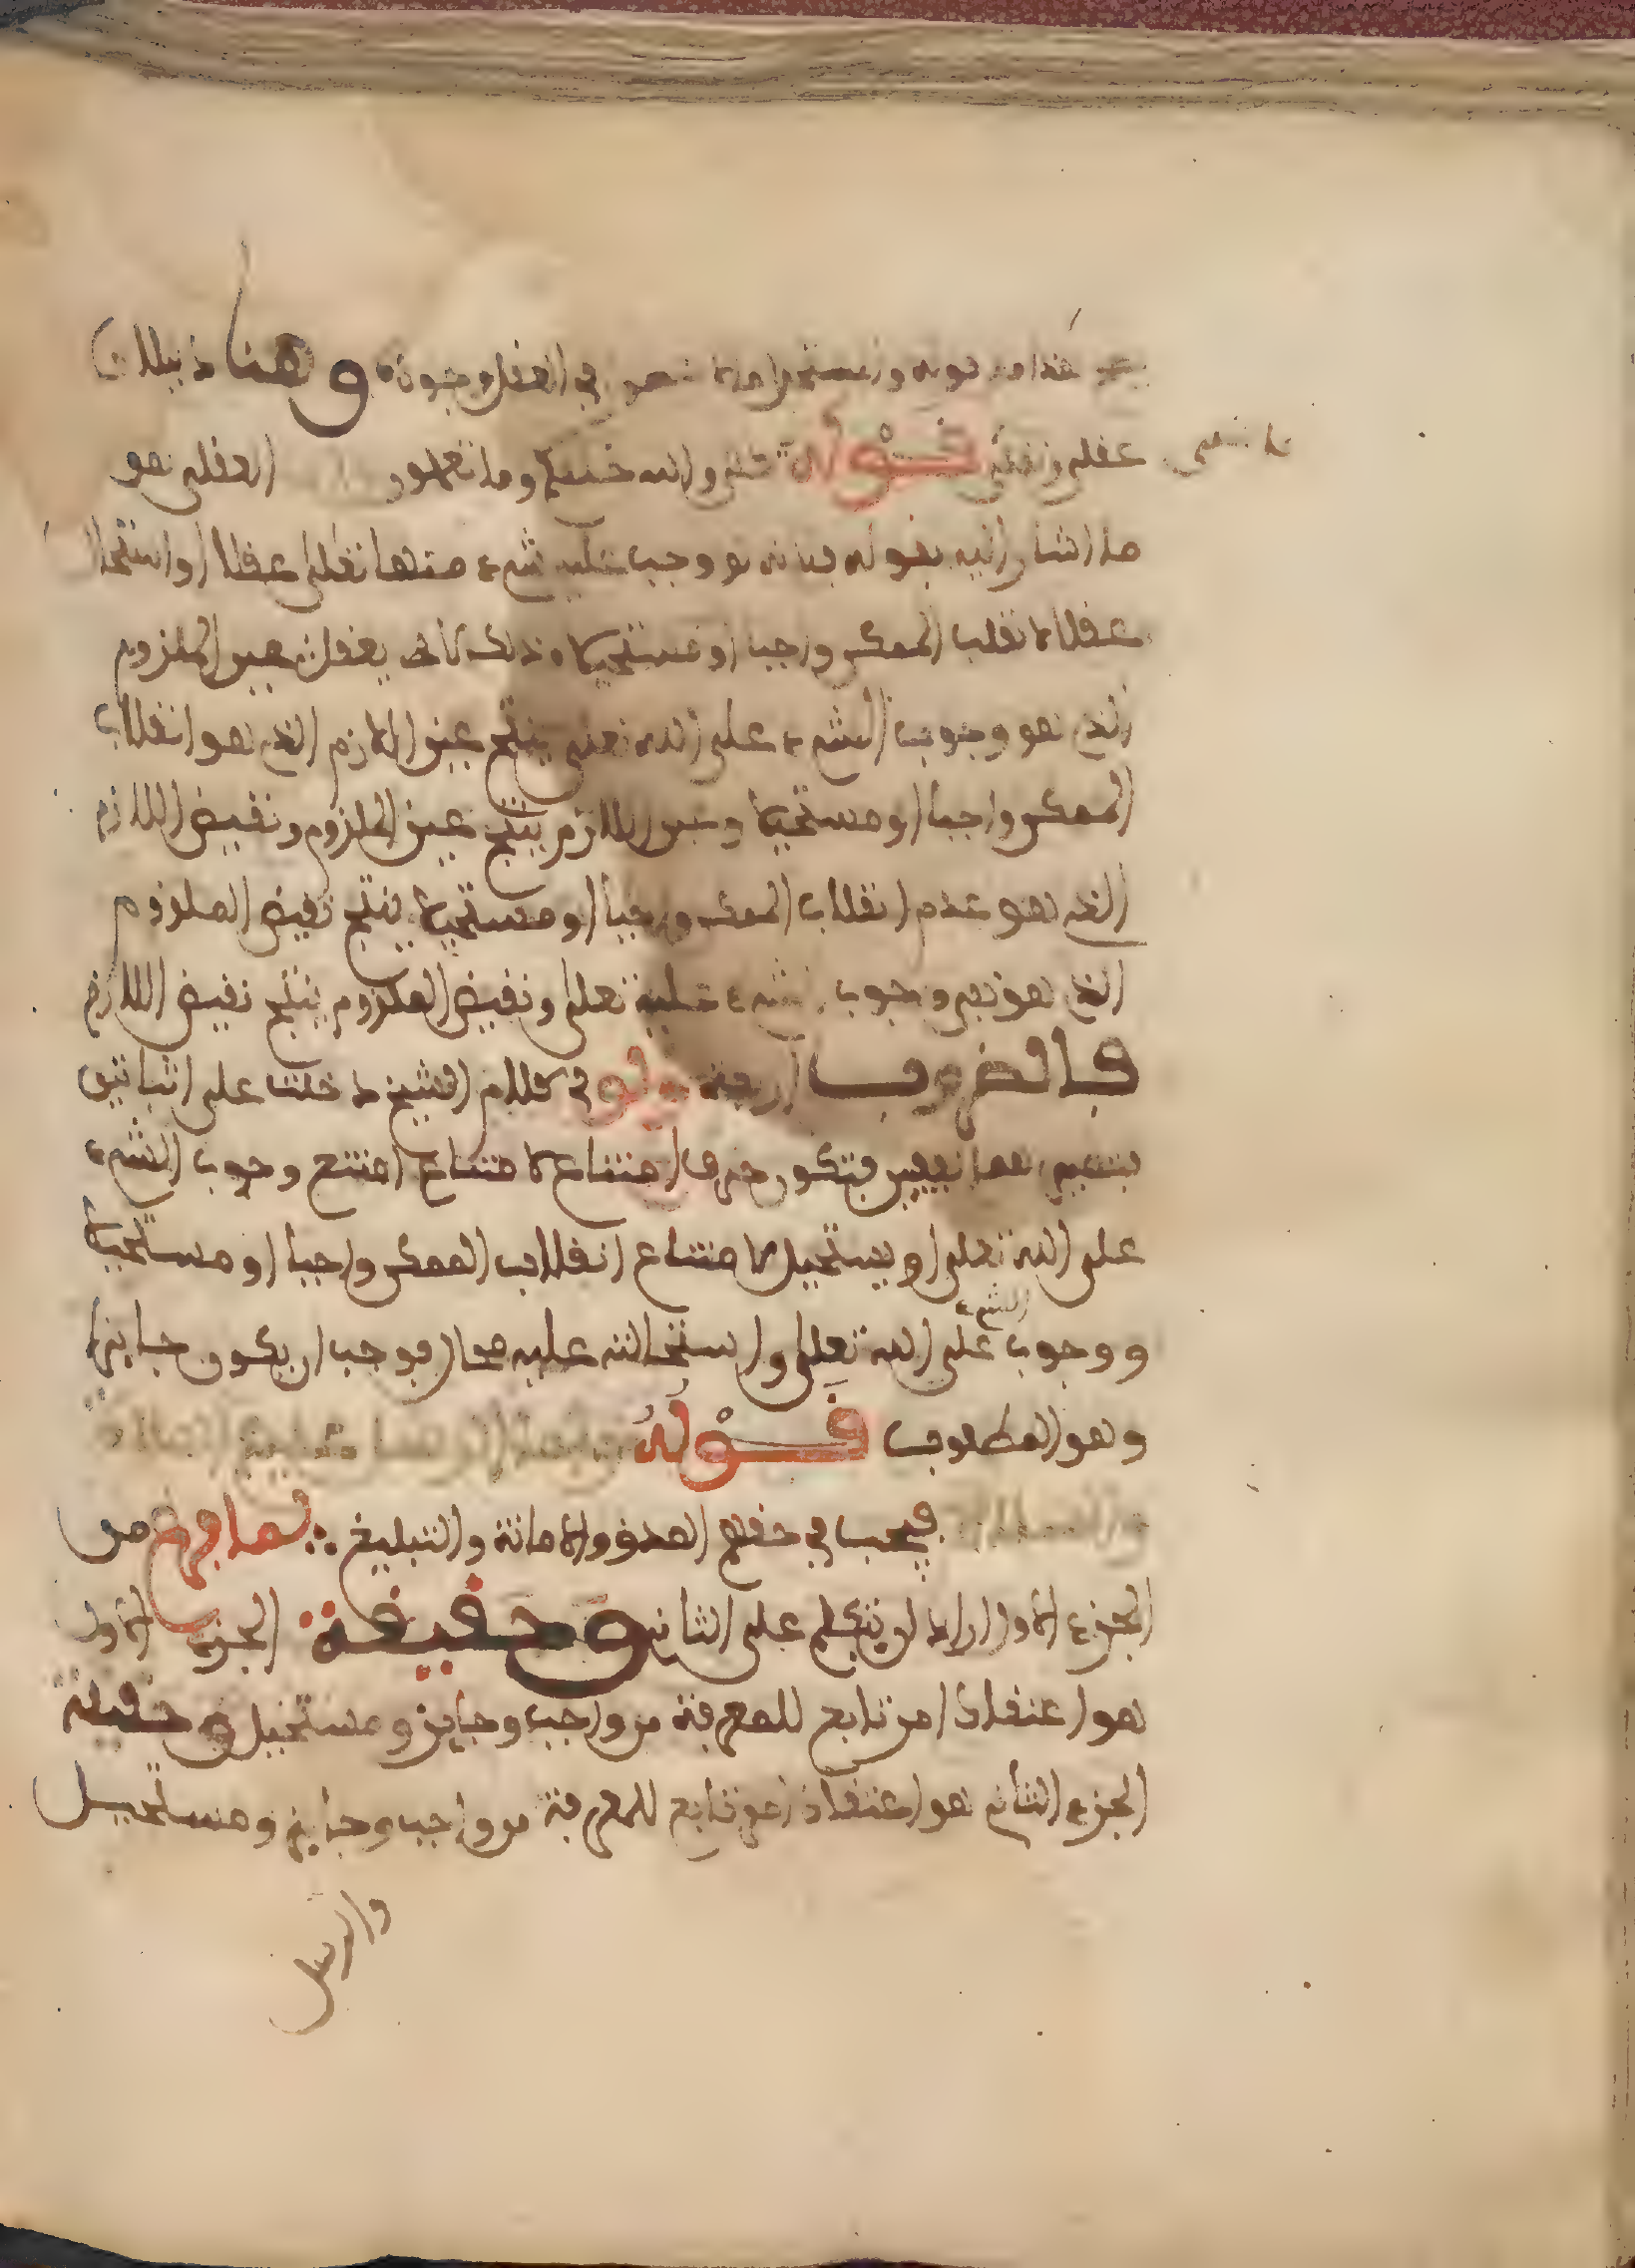 قوله والمستحيل ما لا يتصور في العقل وجوده وهنا دليلان
عقلي ونقلي قوله تعلى والله خلقكم وما تعملون العقلي هو
ما اشار اليه بقوله فلانه لو وجب عليه شيء منها تعلى عقلا او استحال
عقلا لانقلب الممكن واجبا او مستحيلا وذلك لا يعقل عين الملزوم
الذي هو وجوب الشيء على الله تعلى ينتج عين اللازم الذي هو انقلاب
الممكن واجبا او مستحيلا وعين اللازم ينتج عين الملزوم ونقيض اللازم
الذي هو عدم انقلاب الممكن واجبا او مستحيلا ينتج نقيض الملزوم
الذي هو نفي وجوب شيء عليه تعلى ونقيض الملزوم ينتج نقيض اللازم
فالضروب اربعة ولو في كلام الشيخ دخلت على اثباتين
فتصيرهما نفيين فتكون حرف امتناع لامتناع امتنع وجوب الشيء
على الله تعلى او يستحيل لامتناع انقلاب الممكن واجبا او مستحيلا
ووجوب الشيء على الله تعلى واستحالته عليه محال فوجب ان يكون جايزا
وهو المطلوب قوله واما الرسل عليهم الصلاة
والسلام فيجب في حقهم الصدق والامانة والتبليغ لما فرغ من
الجزء الاول اراد ان يتكلم على الثاني وحقيقة الجزء الاول
هو اعتقاد امر تابع للمعرفة من واجب وجايز ومستحيل وحقيقة
الجزء الثاني هو اعتقاد امر تابع للمعرفة من واجب وجايز ومستحيل
والرسل